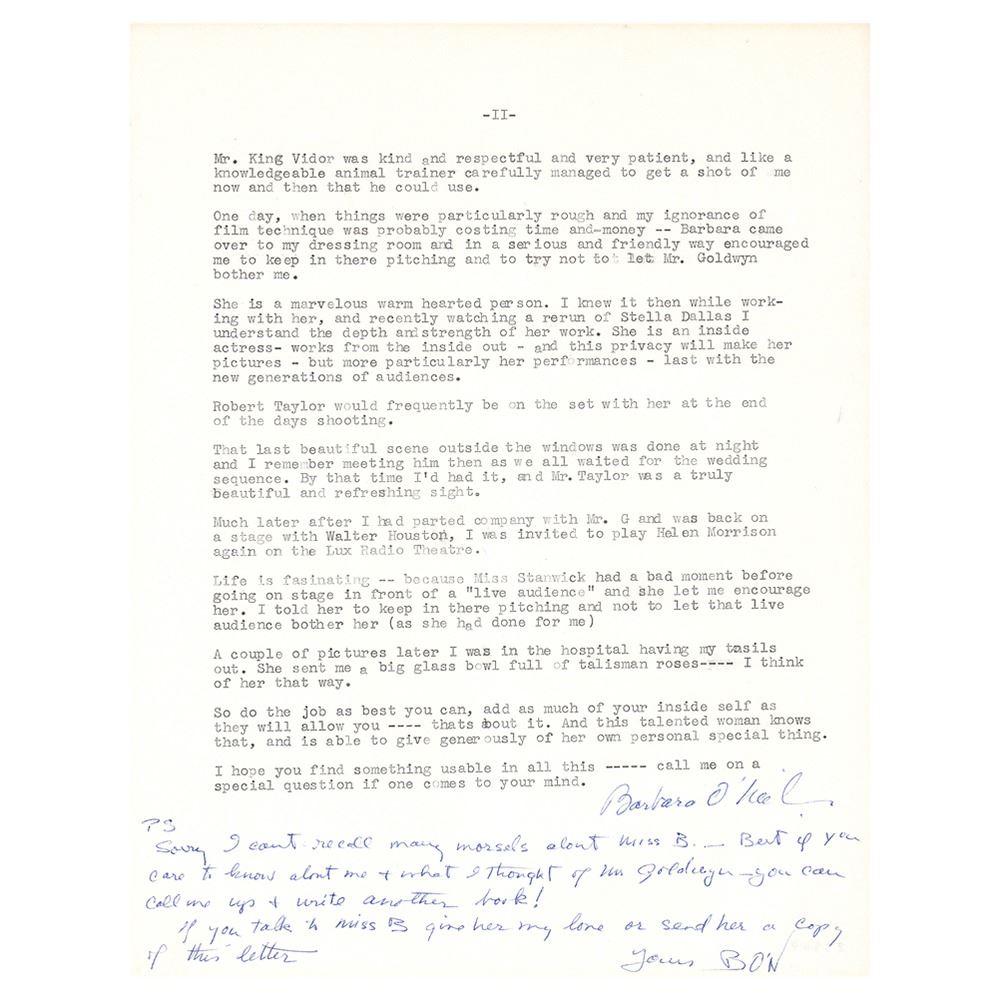 -II-
Mr. King Vidor was kind and respectful and very patient, and like a
knowledgeable animal trainer carefully managed to get a shot of me
now and then that he could use.
One day, when things were particularly rough and my ignorance of
film technique was probably costing time and-money -- Barbara came
over to my dressing room and in a serious and friendly way encouraged
me to keep in there pitching and to try not to let Mr. Goldwyn
bother me.
She is a marvelous warm hearted person. I knew it then while work-
ing with her, and recently watching a rerun of Stella Dallas I
understand the depth and strength of her work. She is an inside
actress- works from the inside out - and this privacy will make her
pictures - but more particularly her performances - last with the
new generations of audiences.
Robert Taylor would frequently be on the set with her at the end
of the days shooting.
That last beautiful scene outside the windows was done at night
and I remember meeting him then as we all waited for the wedding
sequence. By that time I'd had it, and Mr. Taylor was a truly
beautiful and refreshing sight.
Much later after I had parted company with Mr. G and was back on
a stage with Walter Houston, I was invited to play Helen Morrison
again on the Lux Radio Theatre.
Life is fasinating -- because Miss Stanwick had a bad moment before
going on stage in front of a "live audience" and she let me encourage
her. I told her to keep in there pitching and not to let that live
audience bother her (as she had done for me)
A couple of pictures later I was in the hospital having my tnsils
out. She sent me a big glass bowl full of talisman roses---- I think
of her that way.
So do the job as best you can, add as much of your inside self as
they will allow you ---- thats about it. And this talented woman knows
that, and is able to give generously of her own personal special thing.
I hope you find something usable in all this ----- call me on a
special question if one comes to your mind.
Barbara O'Neil
PS
Sorry I cant recall many morsels about Miss B. — But if you
care to know about me + what I thought of Mr Goldwyn — you can
call me up + write another book!
If you talk to Miss B give her my love or send her a copy
of this letter
Yours BO'N